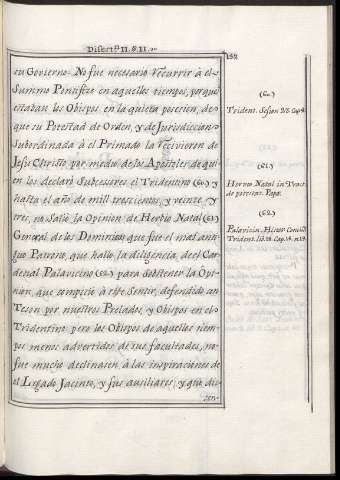 Disert.n II. §. II.
152
su Govierno. No fue necesario recurrir à el
Summo Pontifize en aquellos tiempos, porque
estaban los Obispos en la quieta posesion, de
que su Potestad de Orden, y de Jurisdiccion
Subordinada à el Primado la recivieron de
Jesu Christo por medio de los Apostoles de qui
en los declarò Subcesores el Tridentino (60) y
hasta el año de mil trescientos, y veinte, y
tres, no Saliò la Opinion de Herbeo Natal (61)
General de los Dominicos que fue el mas anti
guo Patrono, que hallò la diligencia del Car
denal Palavicino (62) para sobstener la Opi
nion, que
à este Sentir, defendido an
Teson por nuestros Prelados, y Obispos en el
Tridentino pero los Obispos de aquellos tiem
pos menos advertidos de sus facultades, no
fue mucho declinasen à las inspiraciones de
el Legado Jacinto, y sus auxiliares, y que di
(60)
Trident. Sesion 23. Cap. 4.
(61)
Herveo Natal in Tract.
de potestat. Papæ
(62)
Palavicin. Histor. Concil.
Trident. lib. 18. Cap. 14. n.